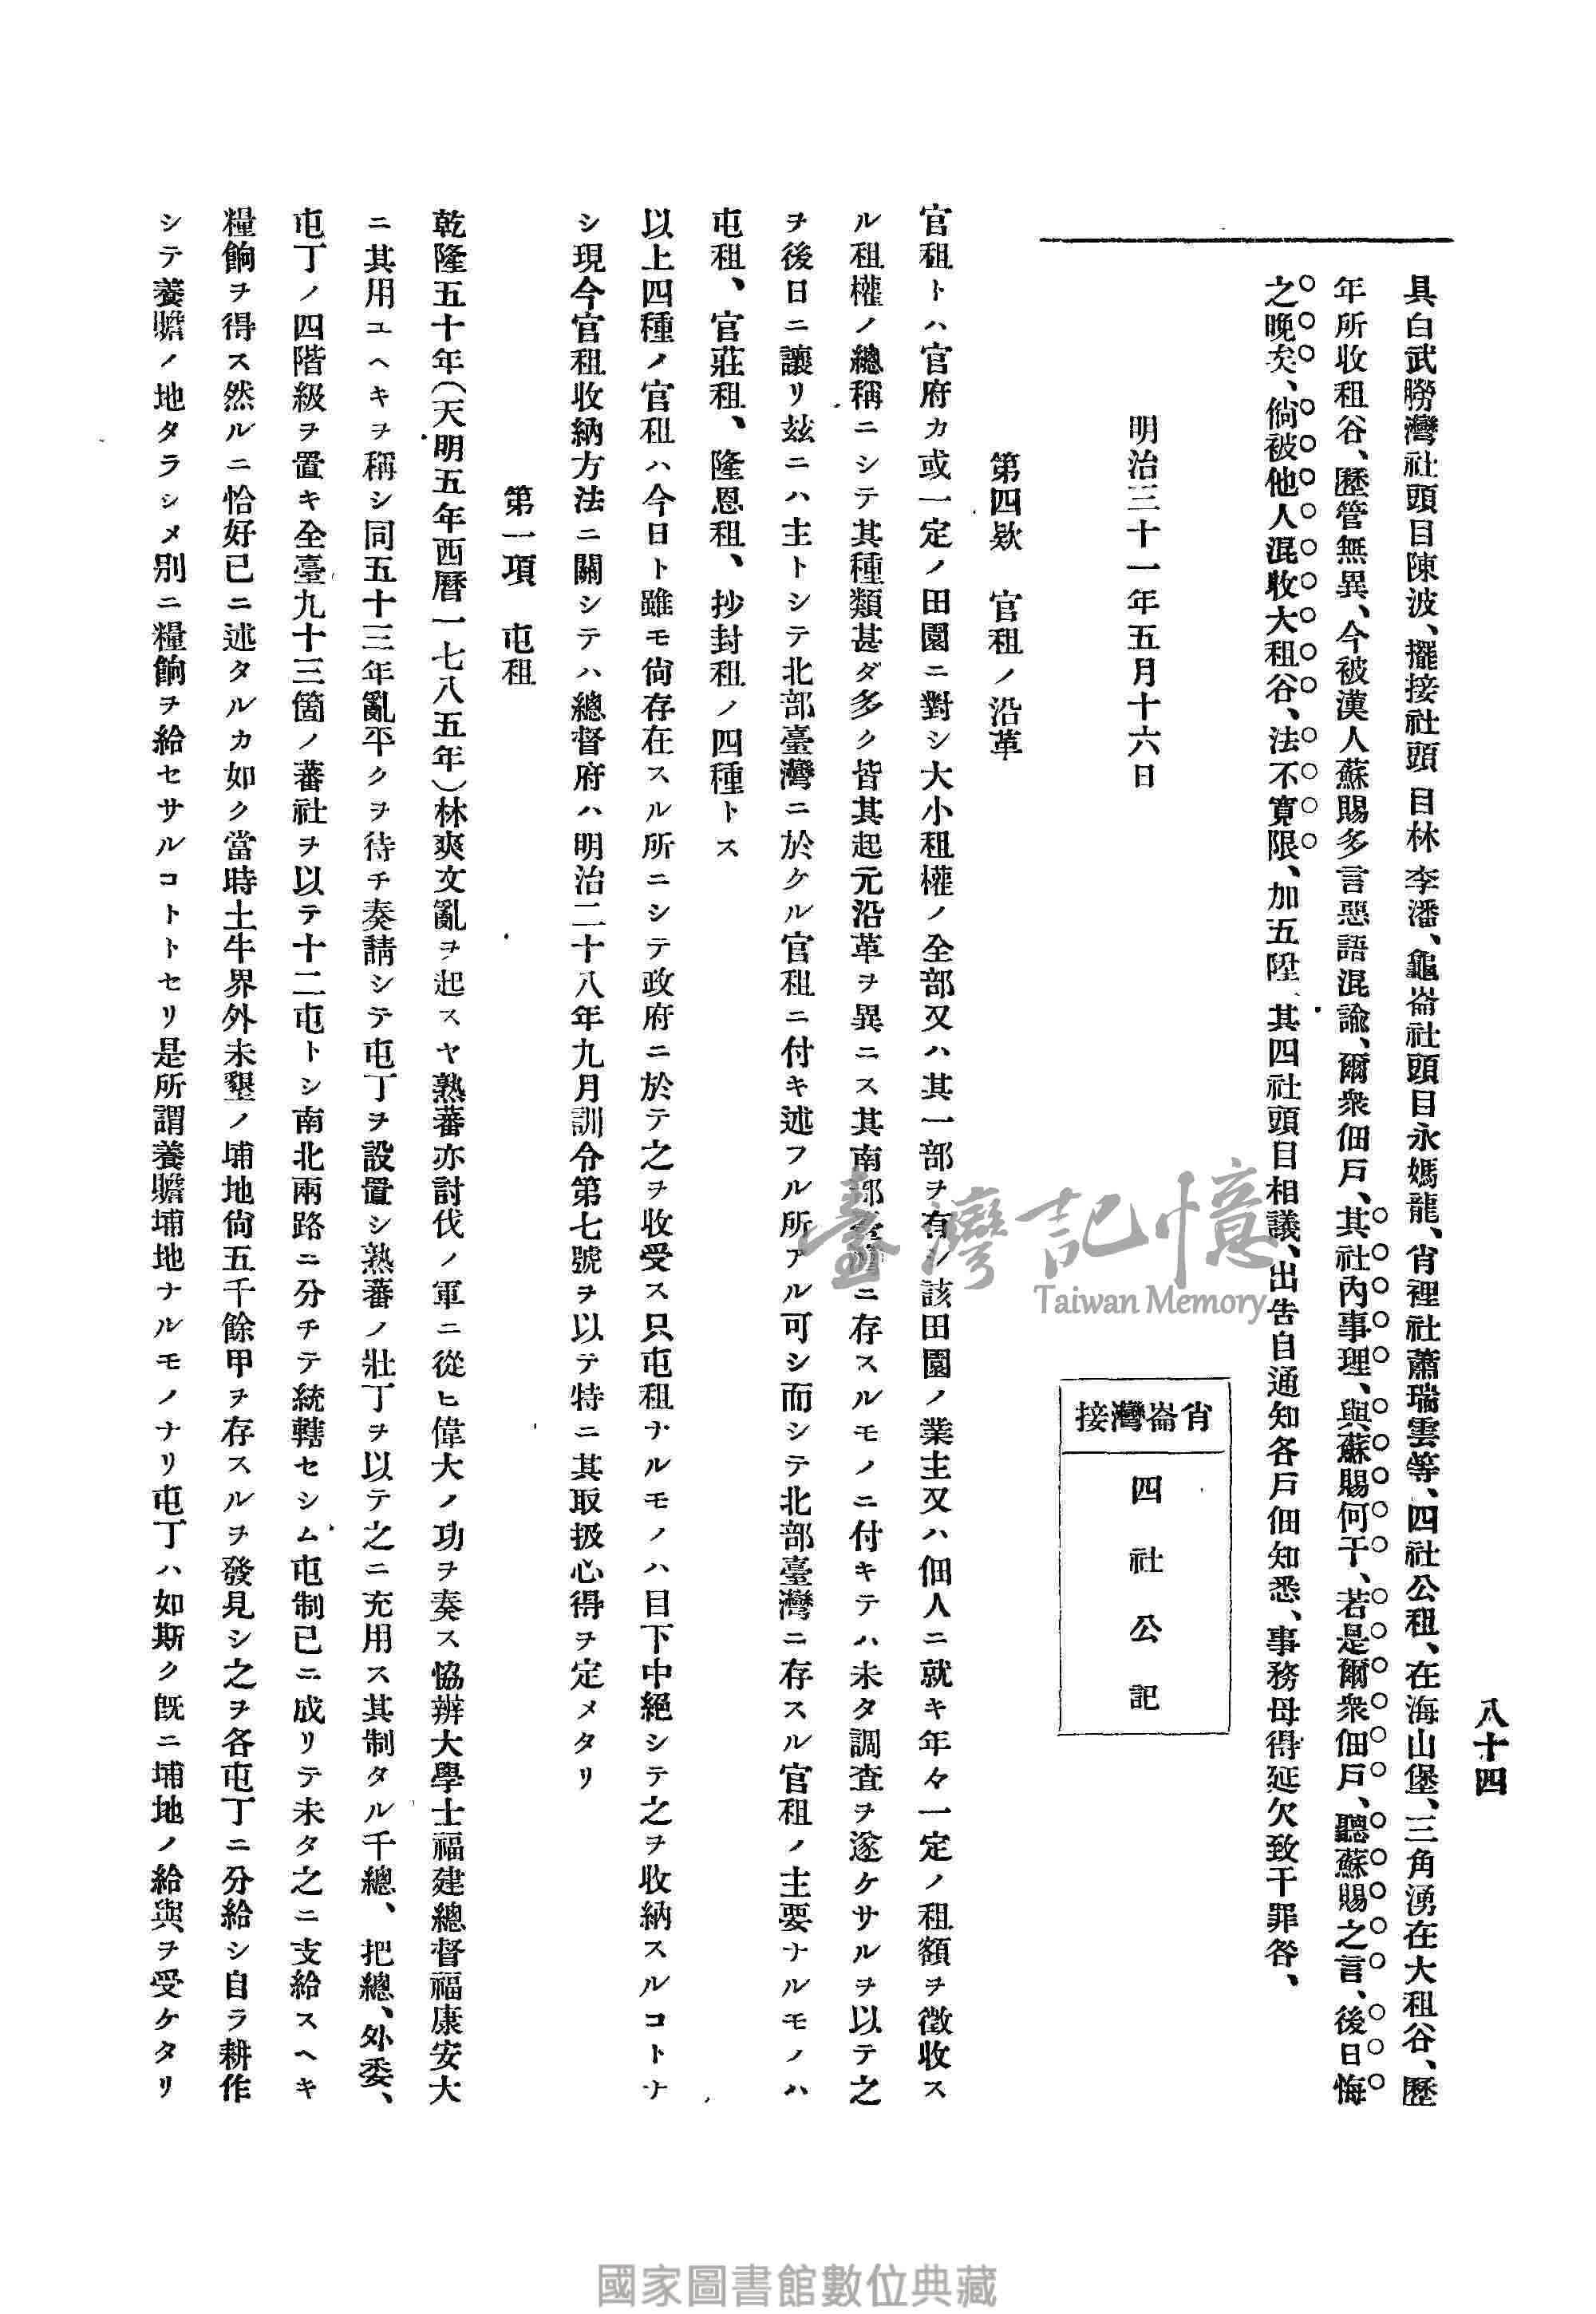 八十四
具白武朥灣社頭目陳波、擺接社頭目林李潘、龜崙社頭目永媽龍、肖裡社蕭瑞雲等、四社公租、在海山堡、三角湧在大租谷、歷
年所收租谷、歷管無異、今被漢人蘇賜多言惡語混諭、爾衆佃戶、其社內事理、與蘇賜何干、若是爾衆佃戶、聽蘇賜之言、後日悔
之晚矣、倘被他人混收大租谷、法不寬限、加五陞、其四社頭目相議、出告自通知各戶佃知悉、事務毋得延欠致干罪咎、
肖崙灣接
四社公記
明治三十一年五月十六日
第四欵 官租ノ沿革
官租トハ官府カ或一定ノ田園ニ對シ大小租權ノ全部又ハ其一部ヲ有シ該田園ノ業主又ハ佃人ニ就キ年々一定ノ租額ヲ徵收ス
ル租權ノ總稱ニシテ其種類甚ダ多ク皆其起元沿革ヲ異ニス其南部臺灣ニ存スルモノニ付キテハ未タ調査ヲ遂ケサルヲ以テ之
ヲ後日ニ讓リ玆ニハ主トシテ北部臺灣ニ於クル官租ニ付キ述フル所アル可シ而シテ北部臺灣ニ存スル官租ノ主要ナルモノハ
屯租、官莊租、隆恩租、抄封租ノ四種トス
以上四種ノ官租ハ今日ト雖モ尙存在スル所ニシテ政府ニ於テ之ヲ收受ス只屯租ナルモノハ目下中絕シテ之ヲ收納スルコトナ
シ現今官租收納方法ニ關シテハ總督府ハ明治二十八年九月訓令第七號ヲ以テ特ニ其取扱心得ヲ定メタリ
第一項 屯租
乾隆五十年(天明五年西曆一七八五年)林爽文亂ヲ起スヤ熟蕃亦討伐ノ軍ニ從ヒ偉大ノ功ヲ奏ス協辦大學士福建總督福康安大
ニ其用ユヘキヲ稱シ同五十三年亂平クヲ待チ奏請シテ屯丁ヲ設置シ熟蕃ノ壯丁ヲ以テ之ニ充用ス其制タル千總、把總、外委、
屯丁ノ四階級ヲ置キ全臺九十三箇ノ蕃社ヲ以テ十二屯トシ南北兩路ニ分チテ統轄セシム屯制已ニ成リテ未タ之ニ支給スヘキ
糧餉ヲ得ス然ルニ恰好已ニ述タルカ如ク當時土牛界外未墾ノ埔地尙五千餘甲ヲ存スルヲ發見シ之ヲ各屯丁ニ分給シ自ラ耕作
シテ養贍ノ地タラシメ別ニ糧餉ヲ給セサルコトトセリ是所謂養贍埔地ナルモノナリ屯丁ハ如斯ク旣ニ埔地ノ給與ヲ受ケタリ
臺灣記憶
Taiwan Memory
國家圖書館數位典藏